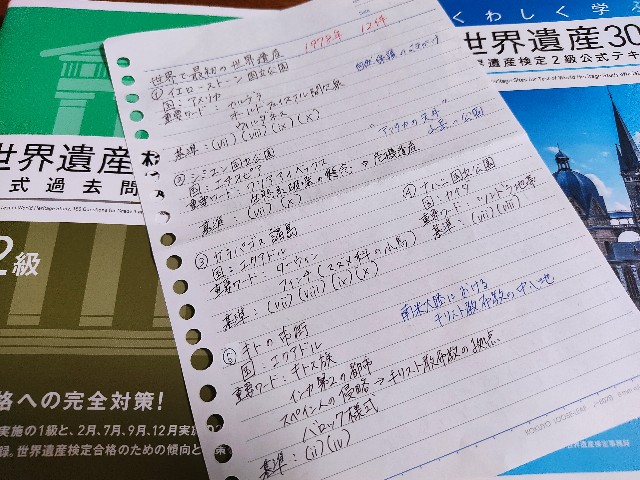 世界で最初の世界遺産 1978年 12件
①イエローストーン国立公園
国：アメリカ
重要ワード：カルデラ
オールド・フェイスフル間欠泉
基準：(vii) (viii) (ix) (x)
"アメリカの天井"
②シミエン国立公園
国：エチオピア
基準：(vii) (x)
→危機遺産
③ガラパゴス諸島
国：エクアドル
重要ワード：ダーウィン
フィンチ (スズメ科の小鳥)
基準：(vii) (viii) (ix) (x)
④ナハニ国立公園
国：カナダ
重要ワード：ツンドラ地帯
基準：(vii) (viii)
南米大陸における
キリスト教布教の中心地
⑤キトの市街
国：エクアドル
重要ワード：キトス族
インカ第2の都市
スペイン人の侵略→キリスト教布教の拠点
バロック様式
基準：(ii) (iv)
世界遺産検
式過去問
2級
格への完全対策！
実施の1級と、2月、7月、9月、12月実
録。世界遺産検定合格のための傾向と
くわしく学
世界遺産30
遺産検定2級公式テキ
世界遺産検定事務局